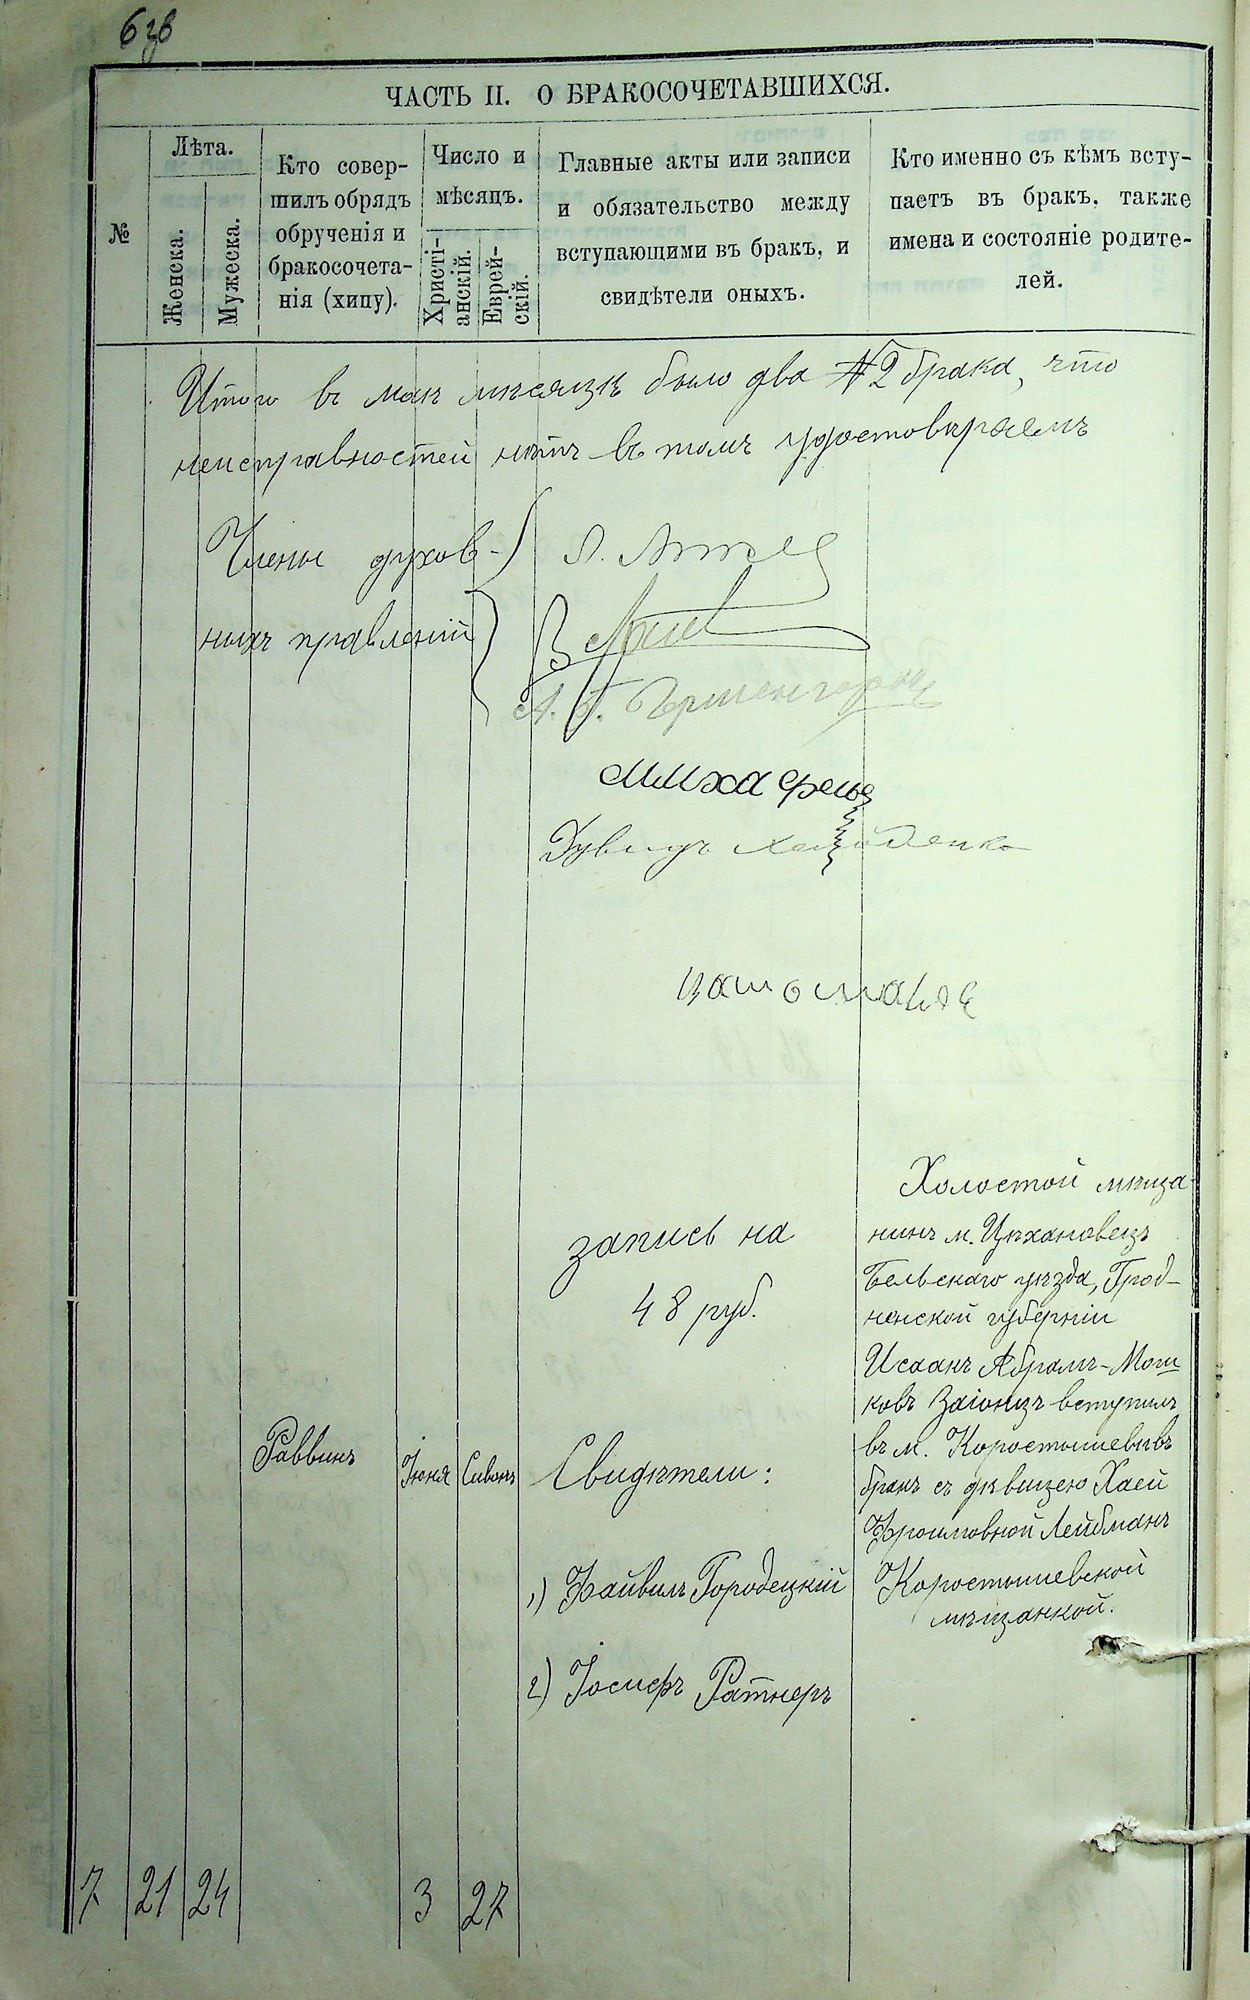 6зв
ЧАСТЬ II. О БРАКОСОЧЕТАВШИХСЯ.
№
Лѣта.
Женска.
Мужеска.
Кто совер-
шилъ обрядъ
обрученія и
бракосочета-
нія (хипу).
Число и
мѣсяцъ.
Христі-
анскій.
Еврей-
скій.
Главные акты или записи
и обязательство между
вступающими въ бракъ, и
свидѣтели оныхъ.
Кто именно съ кѣмъ всту-
паетъ въ бракъ, также
имена и состояніе родите-
лей.
Итого въ маѣ мѣсяцѣ было два 2 брака, что
неисправностей нѣтъ въ томъ удостовѣряемъ
Члены духов-
ныхъ правленій
запись на
48 руб.
Раввинъ
Іюня
Сивонъ
Свидѣтели:
1) Файвиль Городецкій
2) Іосифъ Ратнеръ
Холостой мѣща-
нинъ м. Цѣхановецъ
Бельскаго уѣзда, Грод-
ненской губерніи
Исаакъ Абрамъ-Мош
ковъ Заіонцъ вступилъ
въ м. Коростышевѣ въ
бракъ съ дѣвицею Хаей
Фроимовной Лейбманъ
Коростышевской
мѣщанкой.
7
21
24
3
27